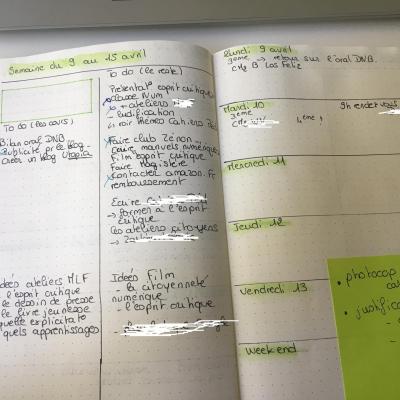 Semaine du 9 au 15 avril
To do (les cours)
Bilan oral DNB
Publicité pr le blog
Créer un blog Utopia
Idées ateliers MLF
l'esprit critique
le dessin de presse
le livre jeunesse
quelle explicitat
quels apprentissages
To do (le reste)
Présentat° esprit critique
Classe Num
+ ateliers
- ludification
Faire club Zénon
Cours manuels numérique
Film esprit critique
Faire
Contacter amazon.fr
remboursement
Ecrire
→ former à l'esprit
critique
Les ateliers citoyens
→
Idées Film
- la citoyenneté
numérique
- l'esprit critique
Lundi 9 avril
3eme → retours sur l'oral DNB
CM2 B Los Feliz
Mardi 10
3eme
4eme,
9h
Mercredi 11
Jeudi 12
Vendredi 13
Week-end
• photocop
• justifica